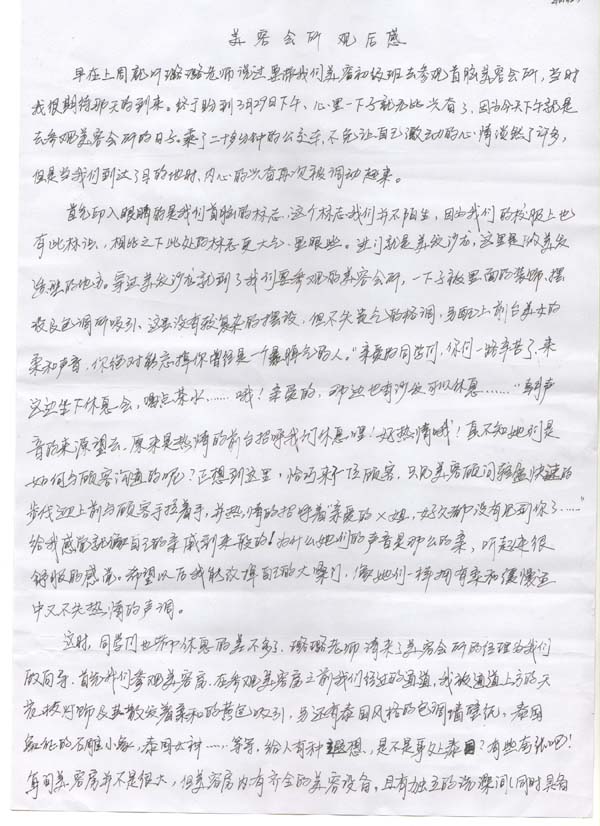 美容会所观后感
早在上周就听璐璐老师说过要带我们美容初级班去参观首脑美容会所，当时
我很期待那天的到来。终于盼到3月29日下午、心里一下子就无比兴奋了，因为今天下午就是
去参观美容会所的日子。乘了二十多分钟的公交车，不免让自己激动的心情淡然了许多，
但是当我们到达了目的地时，内心的兴奋再次被调动起来。
首先印入眼睛的是我们首脑的标志，这个标志我们并不陌生，因为我们的校服上也
有此标识，相比之下此处的标志更大气、显眼些。进门就是美发沙龙，这里是做美发
造型的地方。穿过美发沙龙就到了我们要参观的美容会所，一下子被里面的装饰、摆
设及色调所吸引、这里没有较复杂的摆设，但不失贵气的格调，另配上前台美女的
柔和声音，你绝对能忘掉你曾经是一个暴脾气的人。“亲爱的同学们，你们一路辛苦了，来
这边坐下休息一会，喝点茶水……哦！亲爱的，那边也有沙发可以休息……”朝声
音的来源望去，原来是热情的前台招呼我们休息哩！好热情哦！真不知她们是
如何与顾客沟通的呢？正想到这里，恰巧来了位顾客，只见美容顾问轻盈快速的
步伐迎上前与顾客手拉着手，并热情的招呼着“亲爱的X姐，好久都没有见到你了……”
给我感觉就像自己的亲戚到来般的！为什么她们的声音是那么的柔，听起来很
舒服的感觉。希望以后我能改掉自己的大嗓门，像她们一样拥有柔和缓慢适
中又不失热情的声调。
这时，同学们也听中休息的差不多了，璐璐老师请来了美容会所的经理为我们
做向导，首先我们参观美容房，在参观美容房之前我们经过的通道，我被通道上方的天
花板灯饰及散发着柔和的黄色吸引，另还有泰国风格的色调墙壁纸，泰国
的石雕小象，泰国女神……等等，给人有种遐想，是不是身处泰国？有些夸张吧！
每间美容房并不是很大，但美容房内有齐全的美容设备，且有独立的洗澡间（同时具备